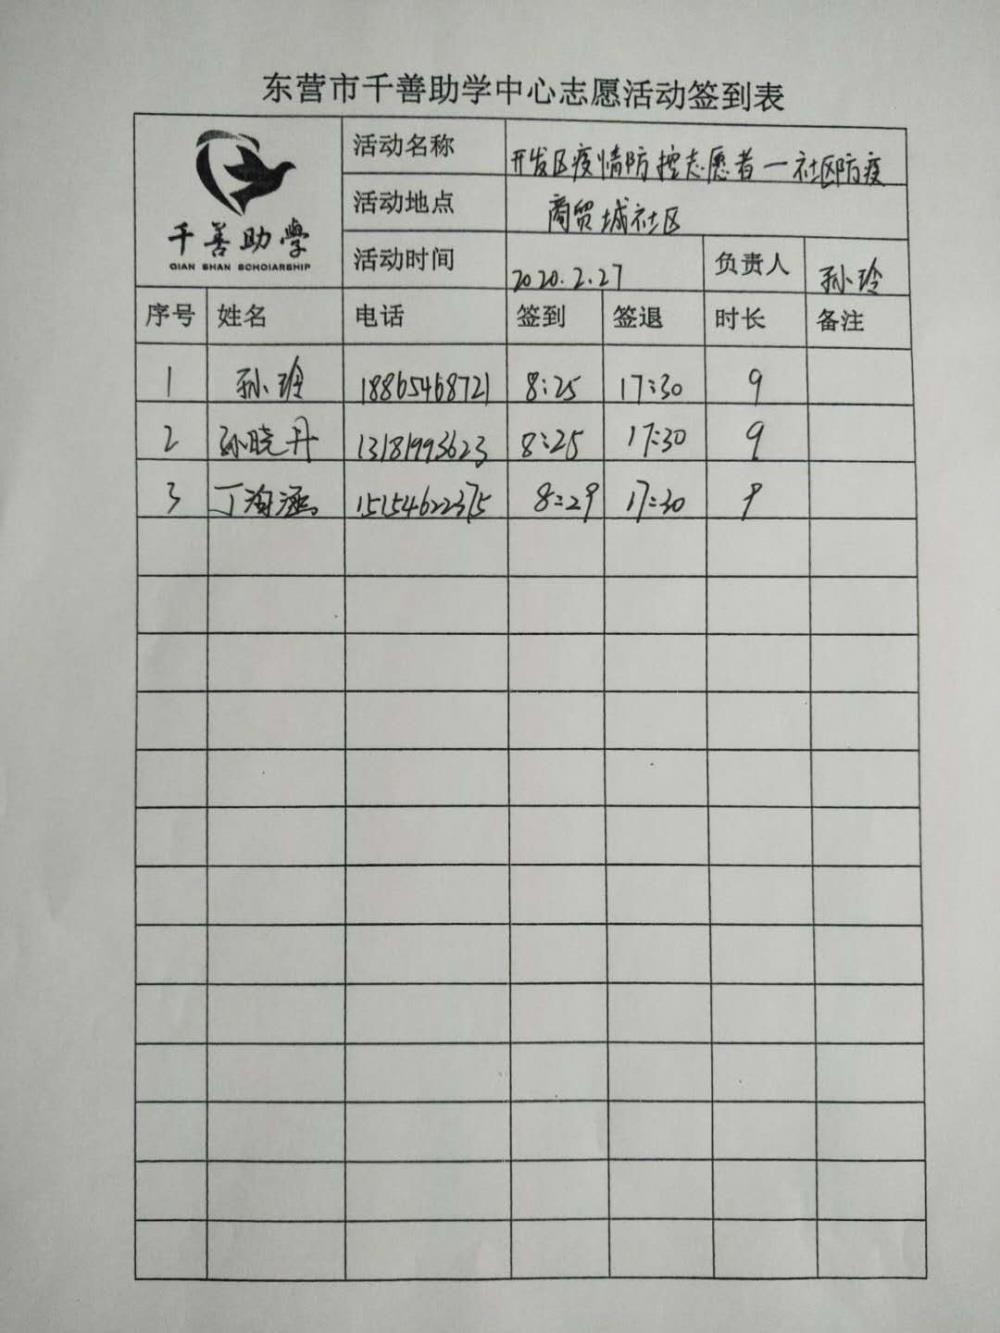 东营市千善助学中心志愿活动签到表
千善助学
QIAN SHAN SCHOIARSHIP
活动名称 开发区疫情防控志愿者一社区防疫
活动地点 商贸城社区
活动时间 2020.2.27 负责人 孙玲
序号 姓名 电话 签到 签退 时长 备注
1 孙玲 18865468721 8:25 17:30 9
2 孙晓丹 13181993623 8:25 17:30 9
3 丁海涵 15154622375 8:29 17:30 9